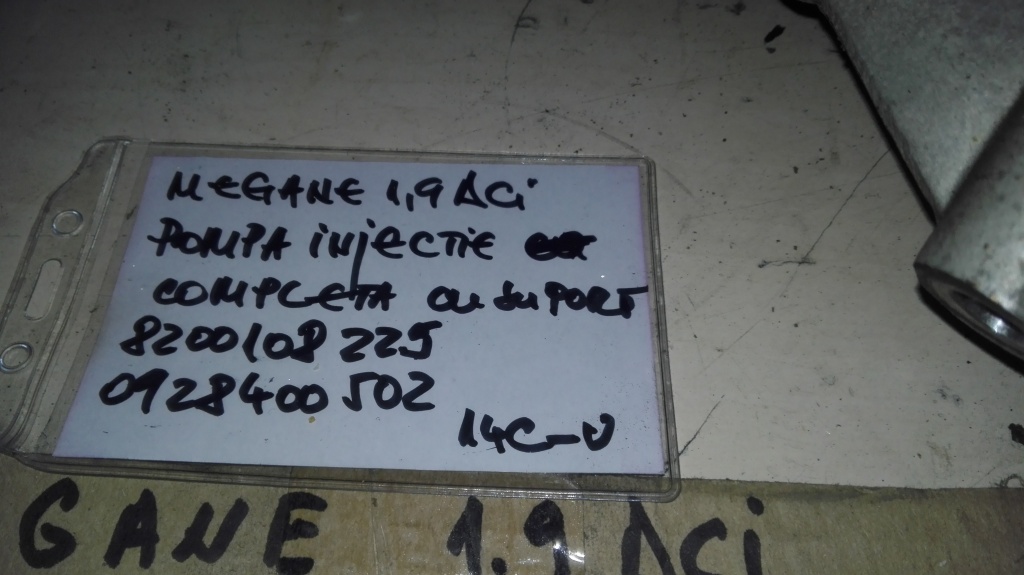 MEGANE 1,9 DCi
POMPA INJECTIE
COMPLETA CU SUPORT
8200108225
0928400502
14C-U
GANE 1.9 DCi